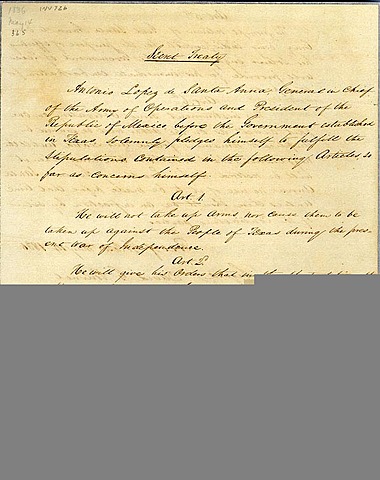 1836
May 14
365
Secret Treaty
Antonio Lopez de Santa Anna, General in Chief
of the Army of Operations and President of the
Republic of Mexico before the Government established
in Texas, solemnly pledges himself to fulfill the
Stipulations contained in the following Articles so
far as concerns himself
Art 1.
He will not take up arms nor cause them to be
taken up against the People of Texas during the pres-
ent War of Independence.
Art 2.
He will give his Orders that in the